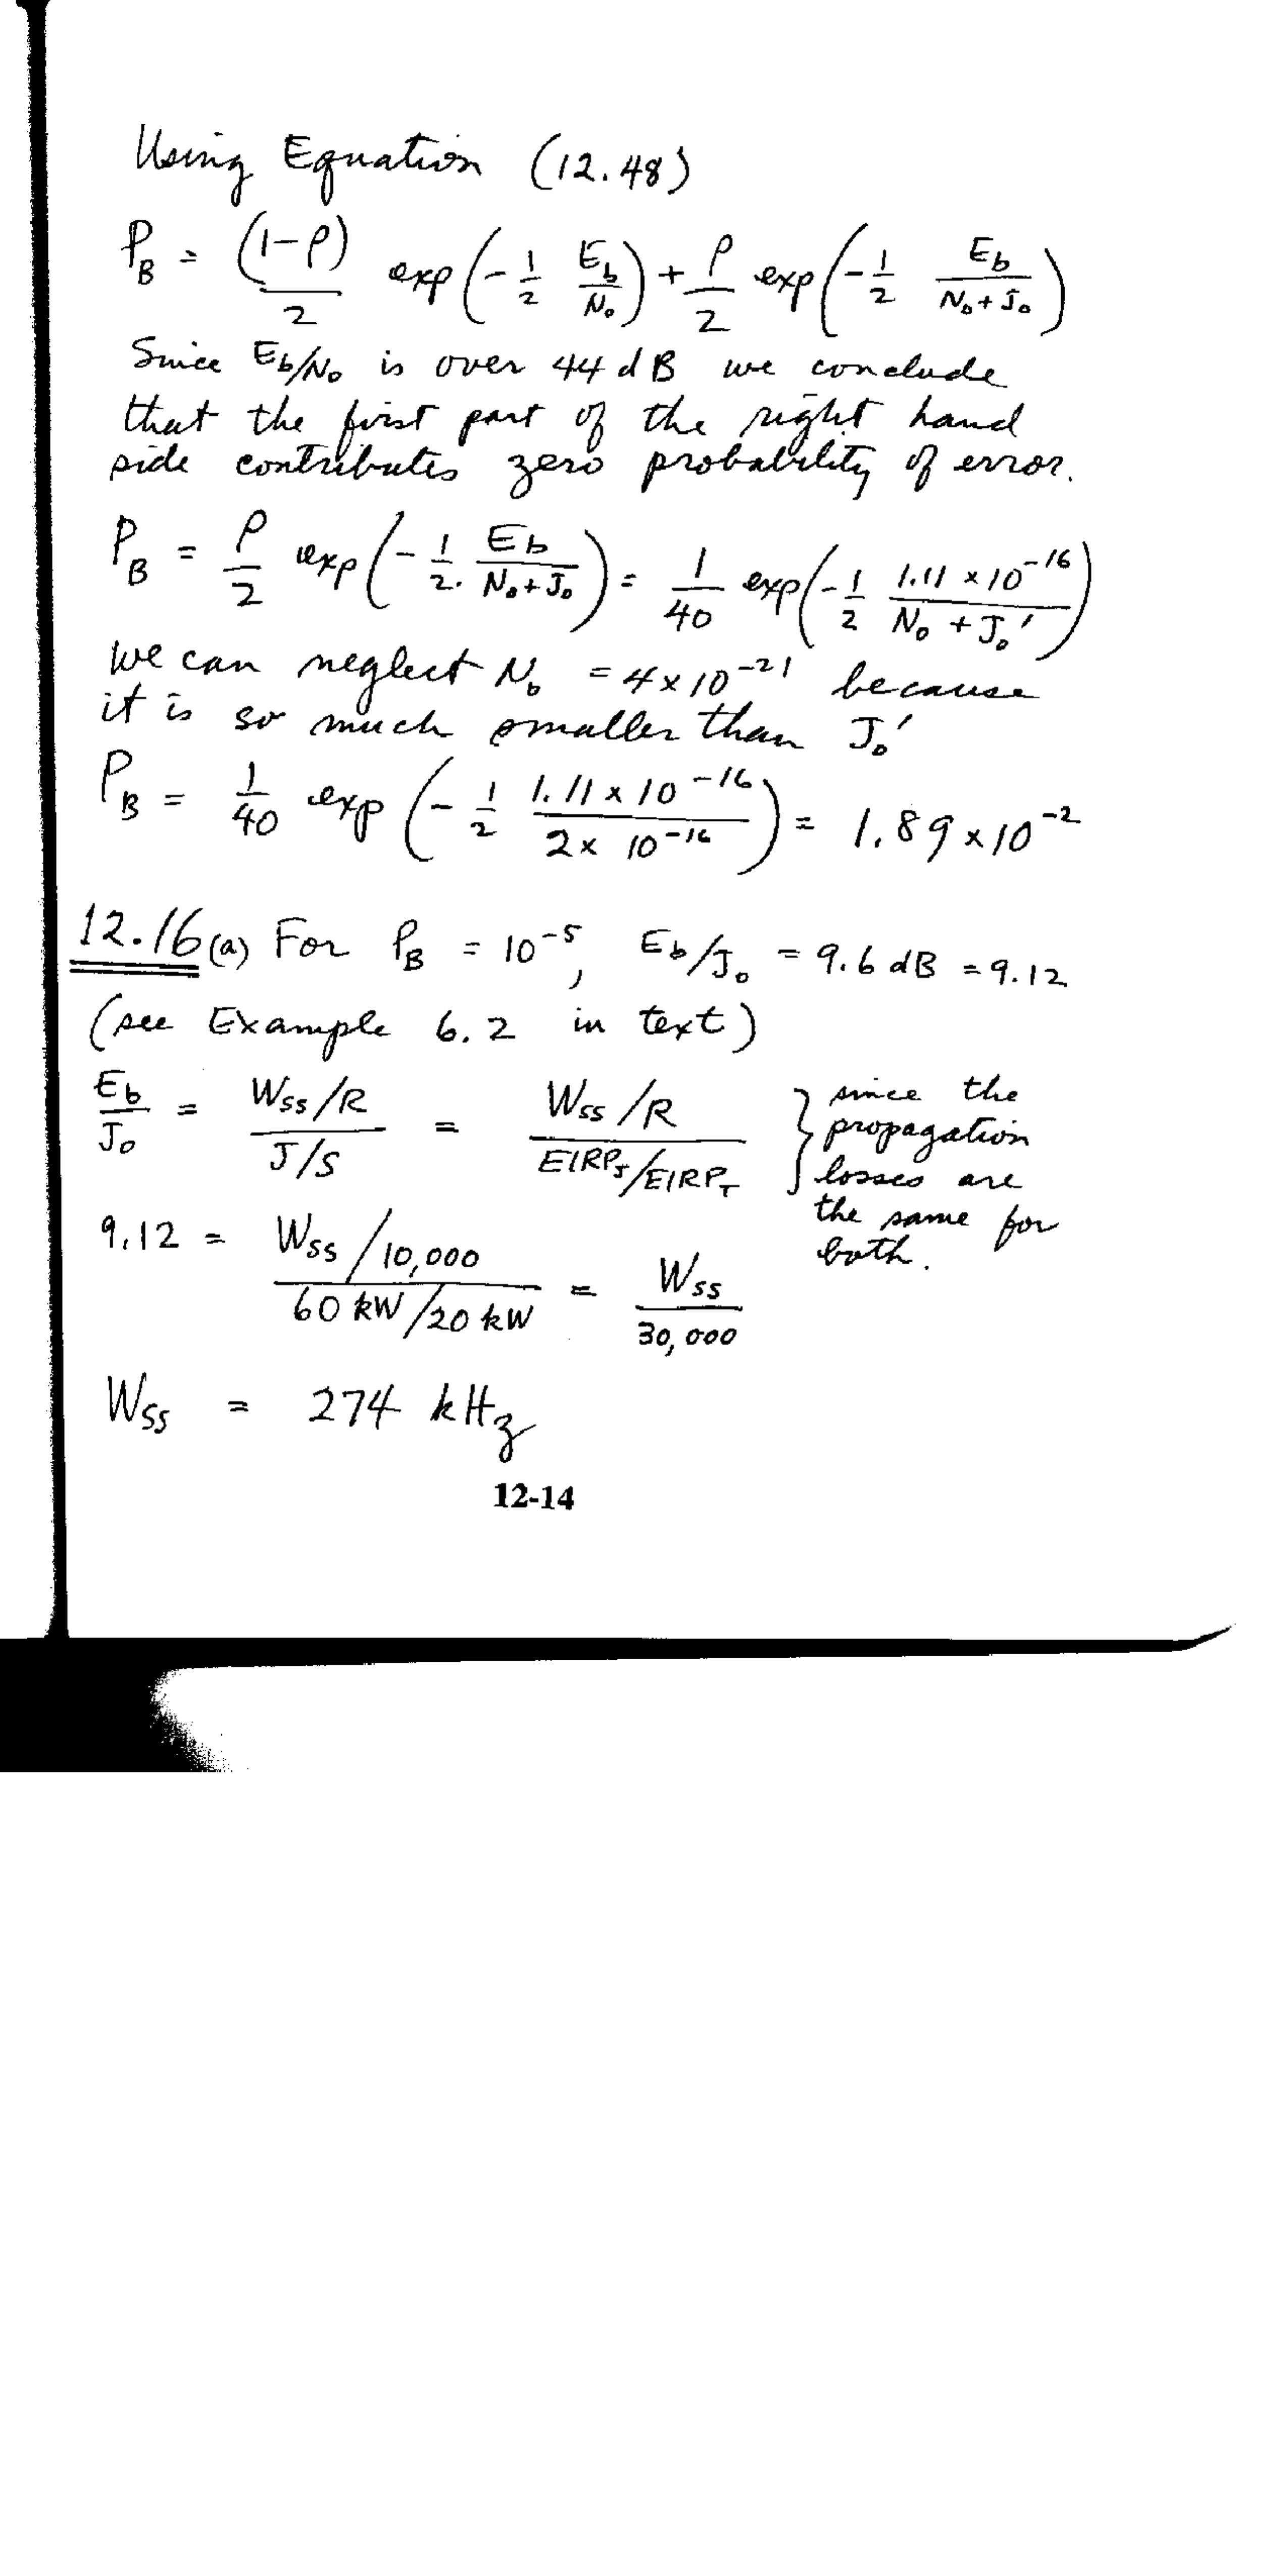 Using Equation (12.48)
P_B = (1-ρ)/2 exp(-1/2 E_b/N_0) + ρ/2 exp(-1/2 E_b/(N_0+J_0))
Since E_b/N_0 is over 44 dB we conclude
that the first part of the right hand
side contributes zero probability of error.
P_B = ρ/2 exp(-1/2. E_b/(N_0+J_0)) = 1/40 exp(-1/2 1.11 × 10^-16/(N_0 + J_0'))
we can neglect N_0 = 4×10^-21 because
it is so much smaller than J_0'
P_B = 1/40 exp(-1/2 1.11 × 10^-16/(2× 10^-16)) = 1.89 × 10^-2
12.16 (a) For P_B = 10^-5, E_b/J_0 = 9.6 dB = 9.12
(see Example 6.2 in text)
E_b/J_0 = (W_ss/R)/(J/S) = (W_ss/R)/(EIRP_J/EIRP_T) } since the
propagation
losses are
the same for
both.
9.12 = (W_ss/10,000)/(60 kW/20 kW) = W_ss/30,000
W_ss = 274 kHz
12-14